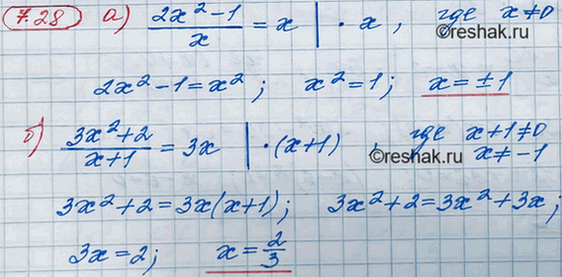 7.28 а) (2x² − 1)/x = x | · x, где x ≠ 0
©reshak.ru
2x² − 1 = x²; x² = 1; x = ±1
б) (3x² + 2)/(x + 1) = 3x | · (x + 1), где x + 1 ≠ 0
©reshak.ru x ≠ −1
3x² + 2 = 3x(x + 1); 3x² + 2 = 3x² + 3x;
3x = 2; x = 2/3